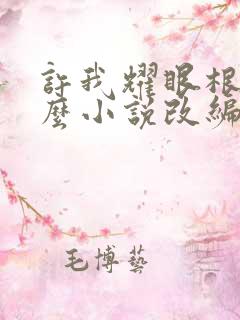 許我耀眼根
麼小說改編
毛博藝